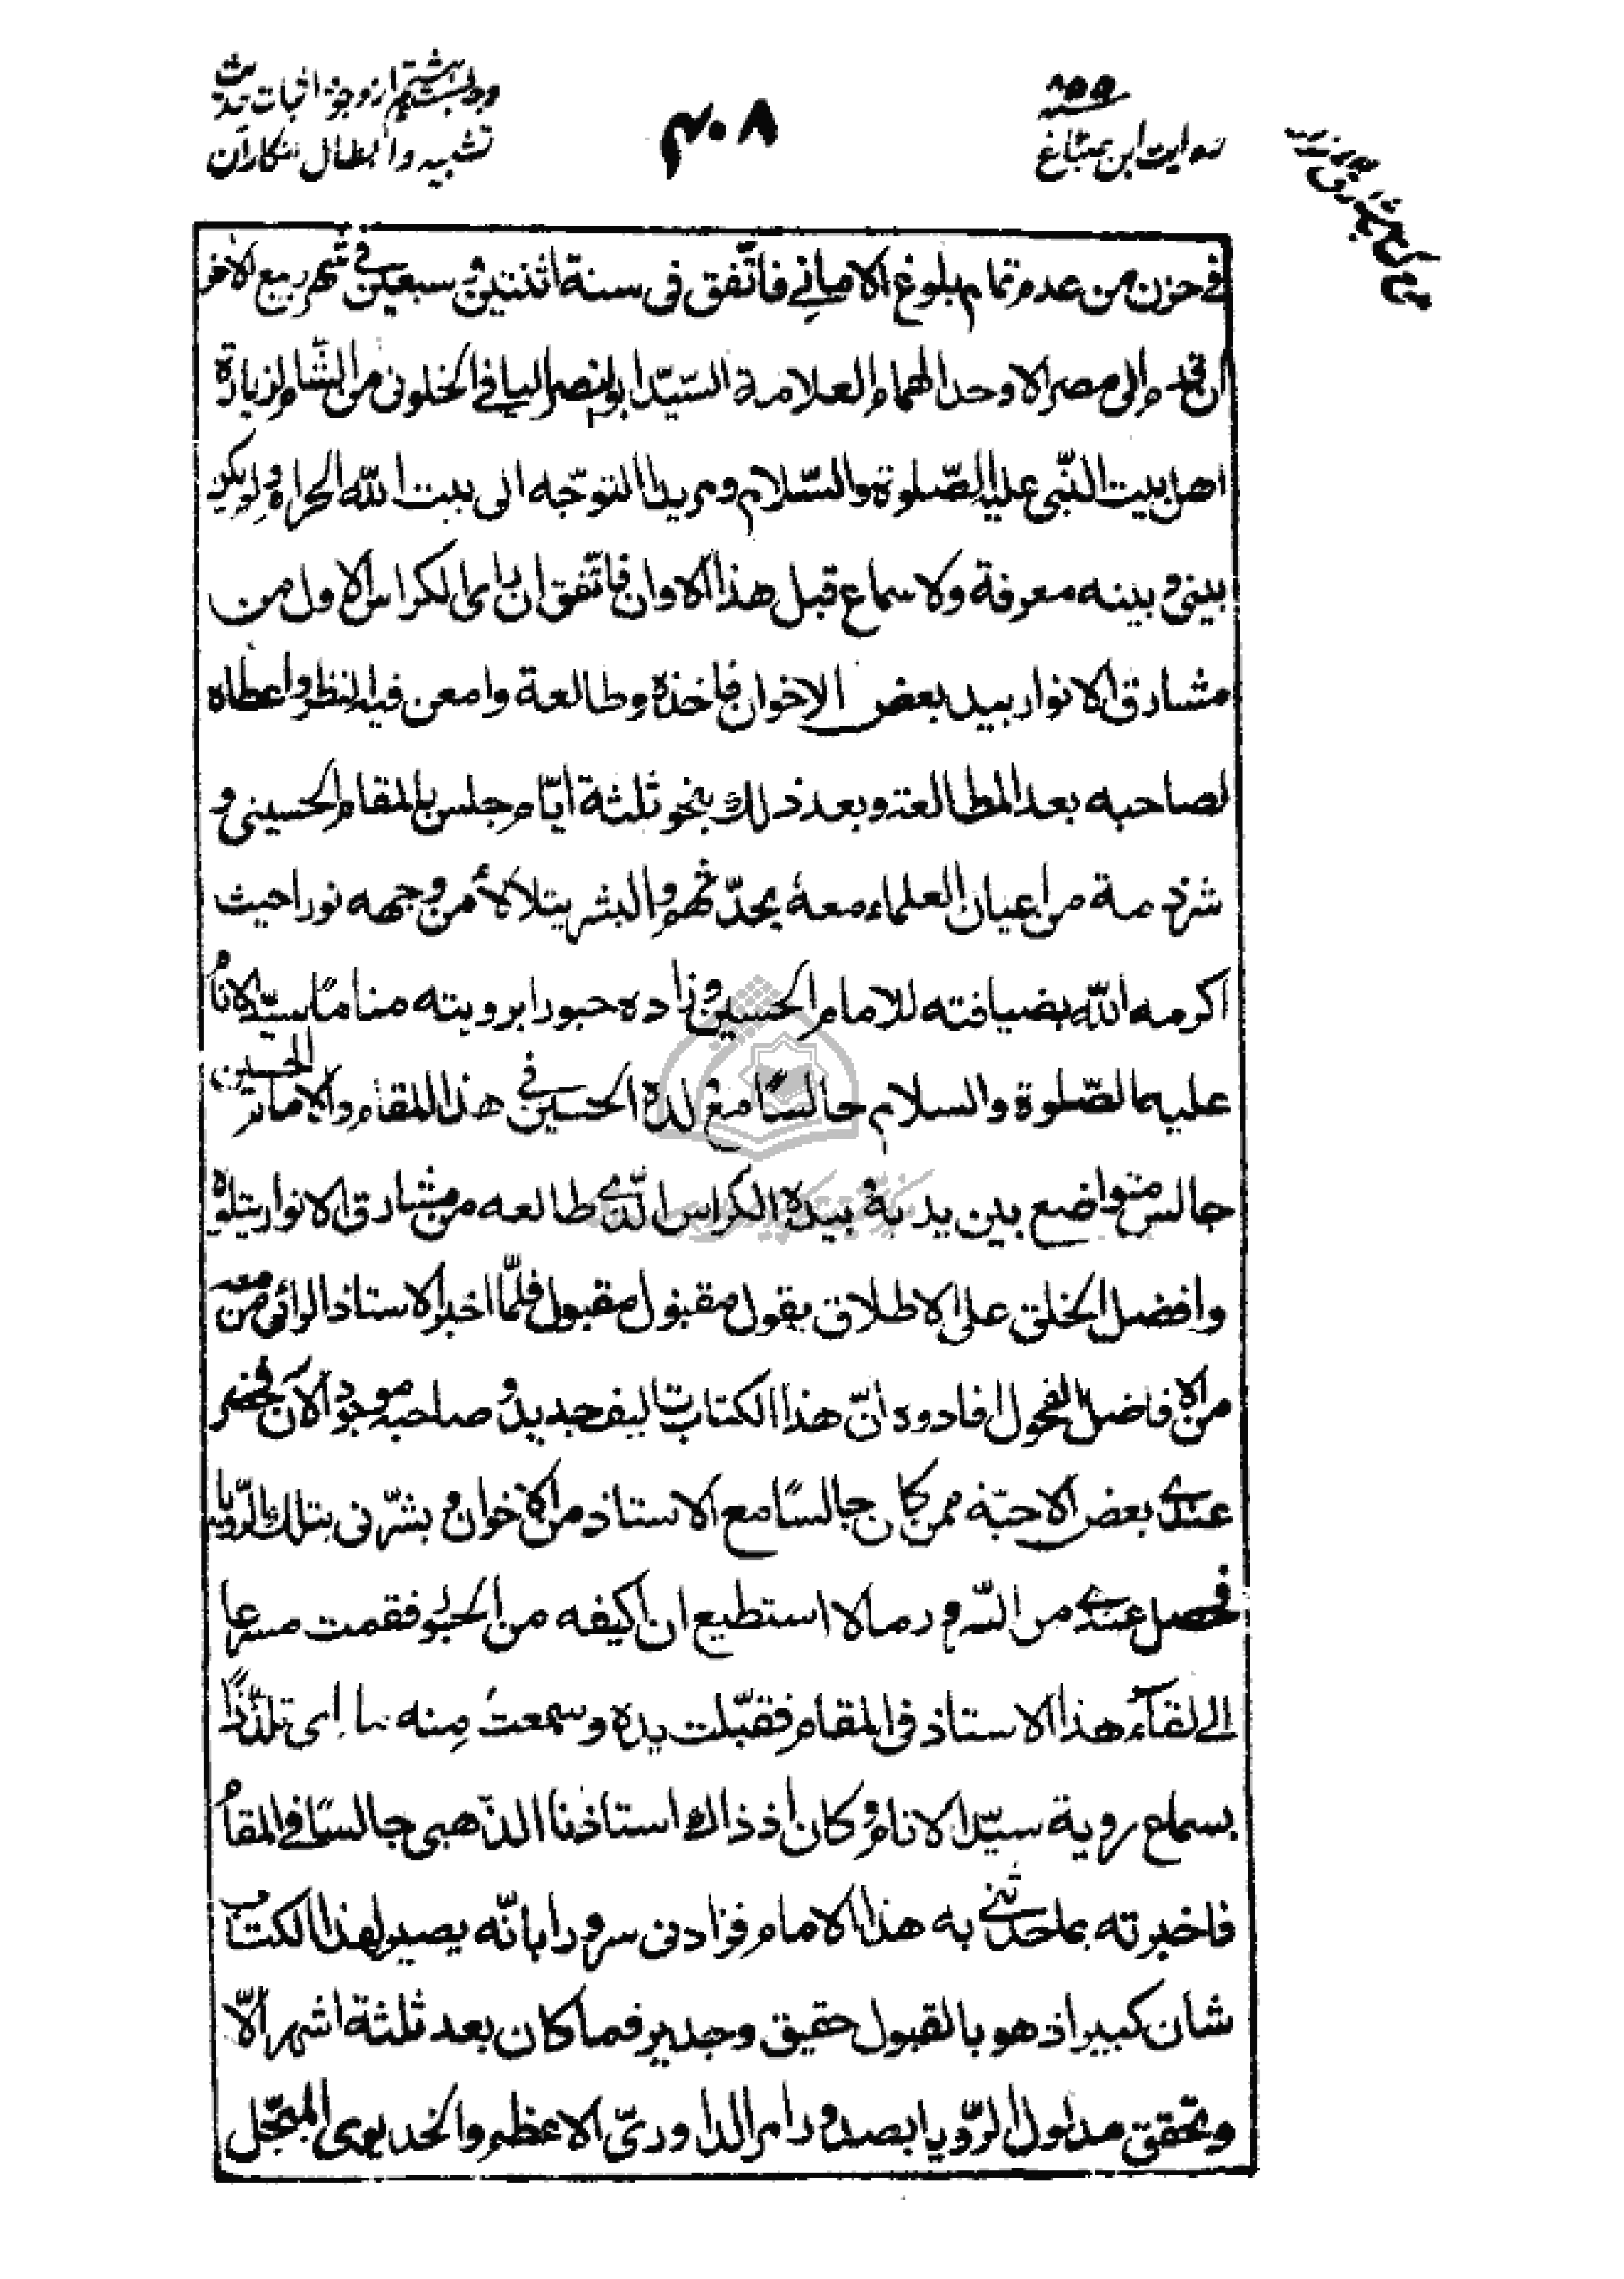 ۸۵۵
روایت ابن صباغ
۴۰۸
وجه بست و هشتم از وجوه اثبات حدیث
تشبیه و ابطال انکار آن
فی حزن من عدم تمام بلوغ الامانی فاتّفق فی سنة اثنتین و سبعین فی شهر ربیع الاخر
ان قدم الی مصر الاوحد الهمام العلامة السیّد ابو النصر الیافی الخلوتی من الشّام لزیارة
اهل بیت النّبی علیه الصّلوة والسّلام ومرید التوجّه الی بیت الله الحرام ولم یکن
بینی و بینه معرفة ولا سماع قبل هذا الاوان فاتّفق ان رای الکراس الاول من
مشارق الانوار بید بعض الاخوان فاخذه وطالعة وامعن فیه النظر واعطاه
لصاحبه بعد المطالعة وبعد ذلك بنحو ثلثة ایّام جلس بالمقام الحسینی و
شرذمة من اعیان العلماء معه یحدّثهم والبشر یتلألأ من وجهه نورا حیث
اکرمه الله بضیافته للامام الحسین وزاده حبورا برویته مناما سیّد الانام
علیهما الصّلوة والسلام جالسًا مع ولده الحسین فی هذا المقام والامام الحسین
جالس متواضع بین یدیه بیده الکراس الّذی طالعه من مشارق الانوار یتلوه
وافضل الخلق علی الاطلاق یقول مقبول مقبول فلمّا اخبر الاستاذ الرائی من معه
من الافاضل الفحول افادوه انّ هذا الکتاب تالیف جدید وصاحبه موجود الآن فحضر
عندی بعض الاحبّة ممن کان جالسًا مع الاستاذ من الاخوان و بشّرنی بتلك الرّویا
فحصل عندی من السّرور ما لا استطیع ان اکیفه من الحبور فقمت مسرعا
الی لقاء هذا الاستاذ فی المقام فقبّلت یده وسمعت منه تلذّذًا
بسماع رویة سیّد الانام و کان اذ ذاك استاذنا الذّهبی جالسًا فی المقام
فاخبرته بما حدّثنی به هذا الامام فزادنی سرورا بانّه یصیر لهذا الکتاب
شأن کبیر اذ هو بالقبول حقیق وجدیر فما کان بعد ثلثة اشهر الّا
وتحقق مدلول الرّویا بصدور امر الداوریّ الاعظم والخدیوی المبجّل